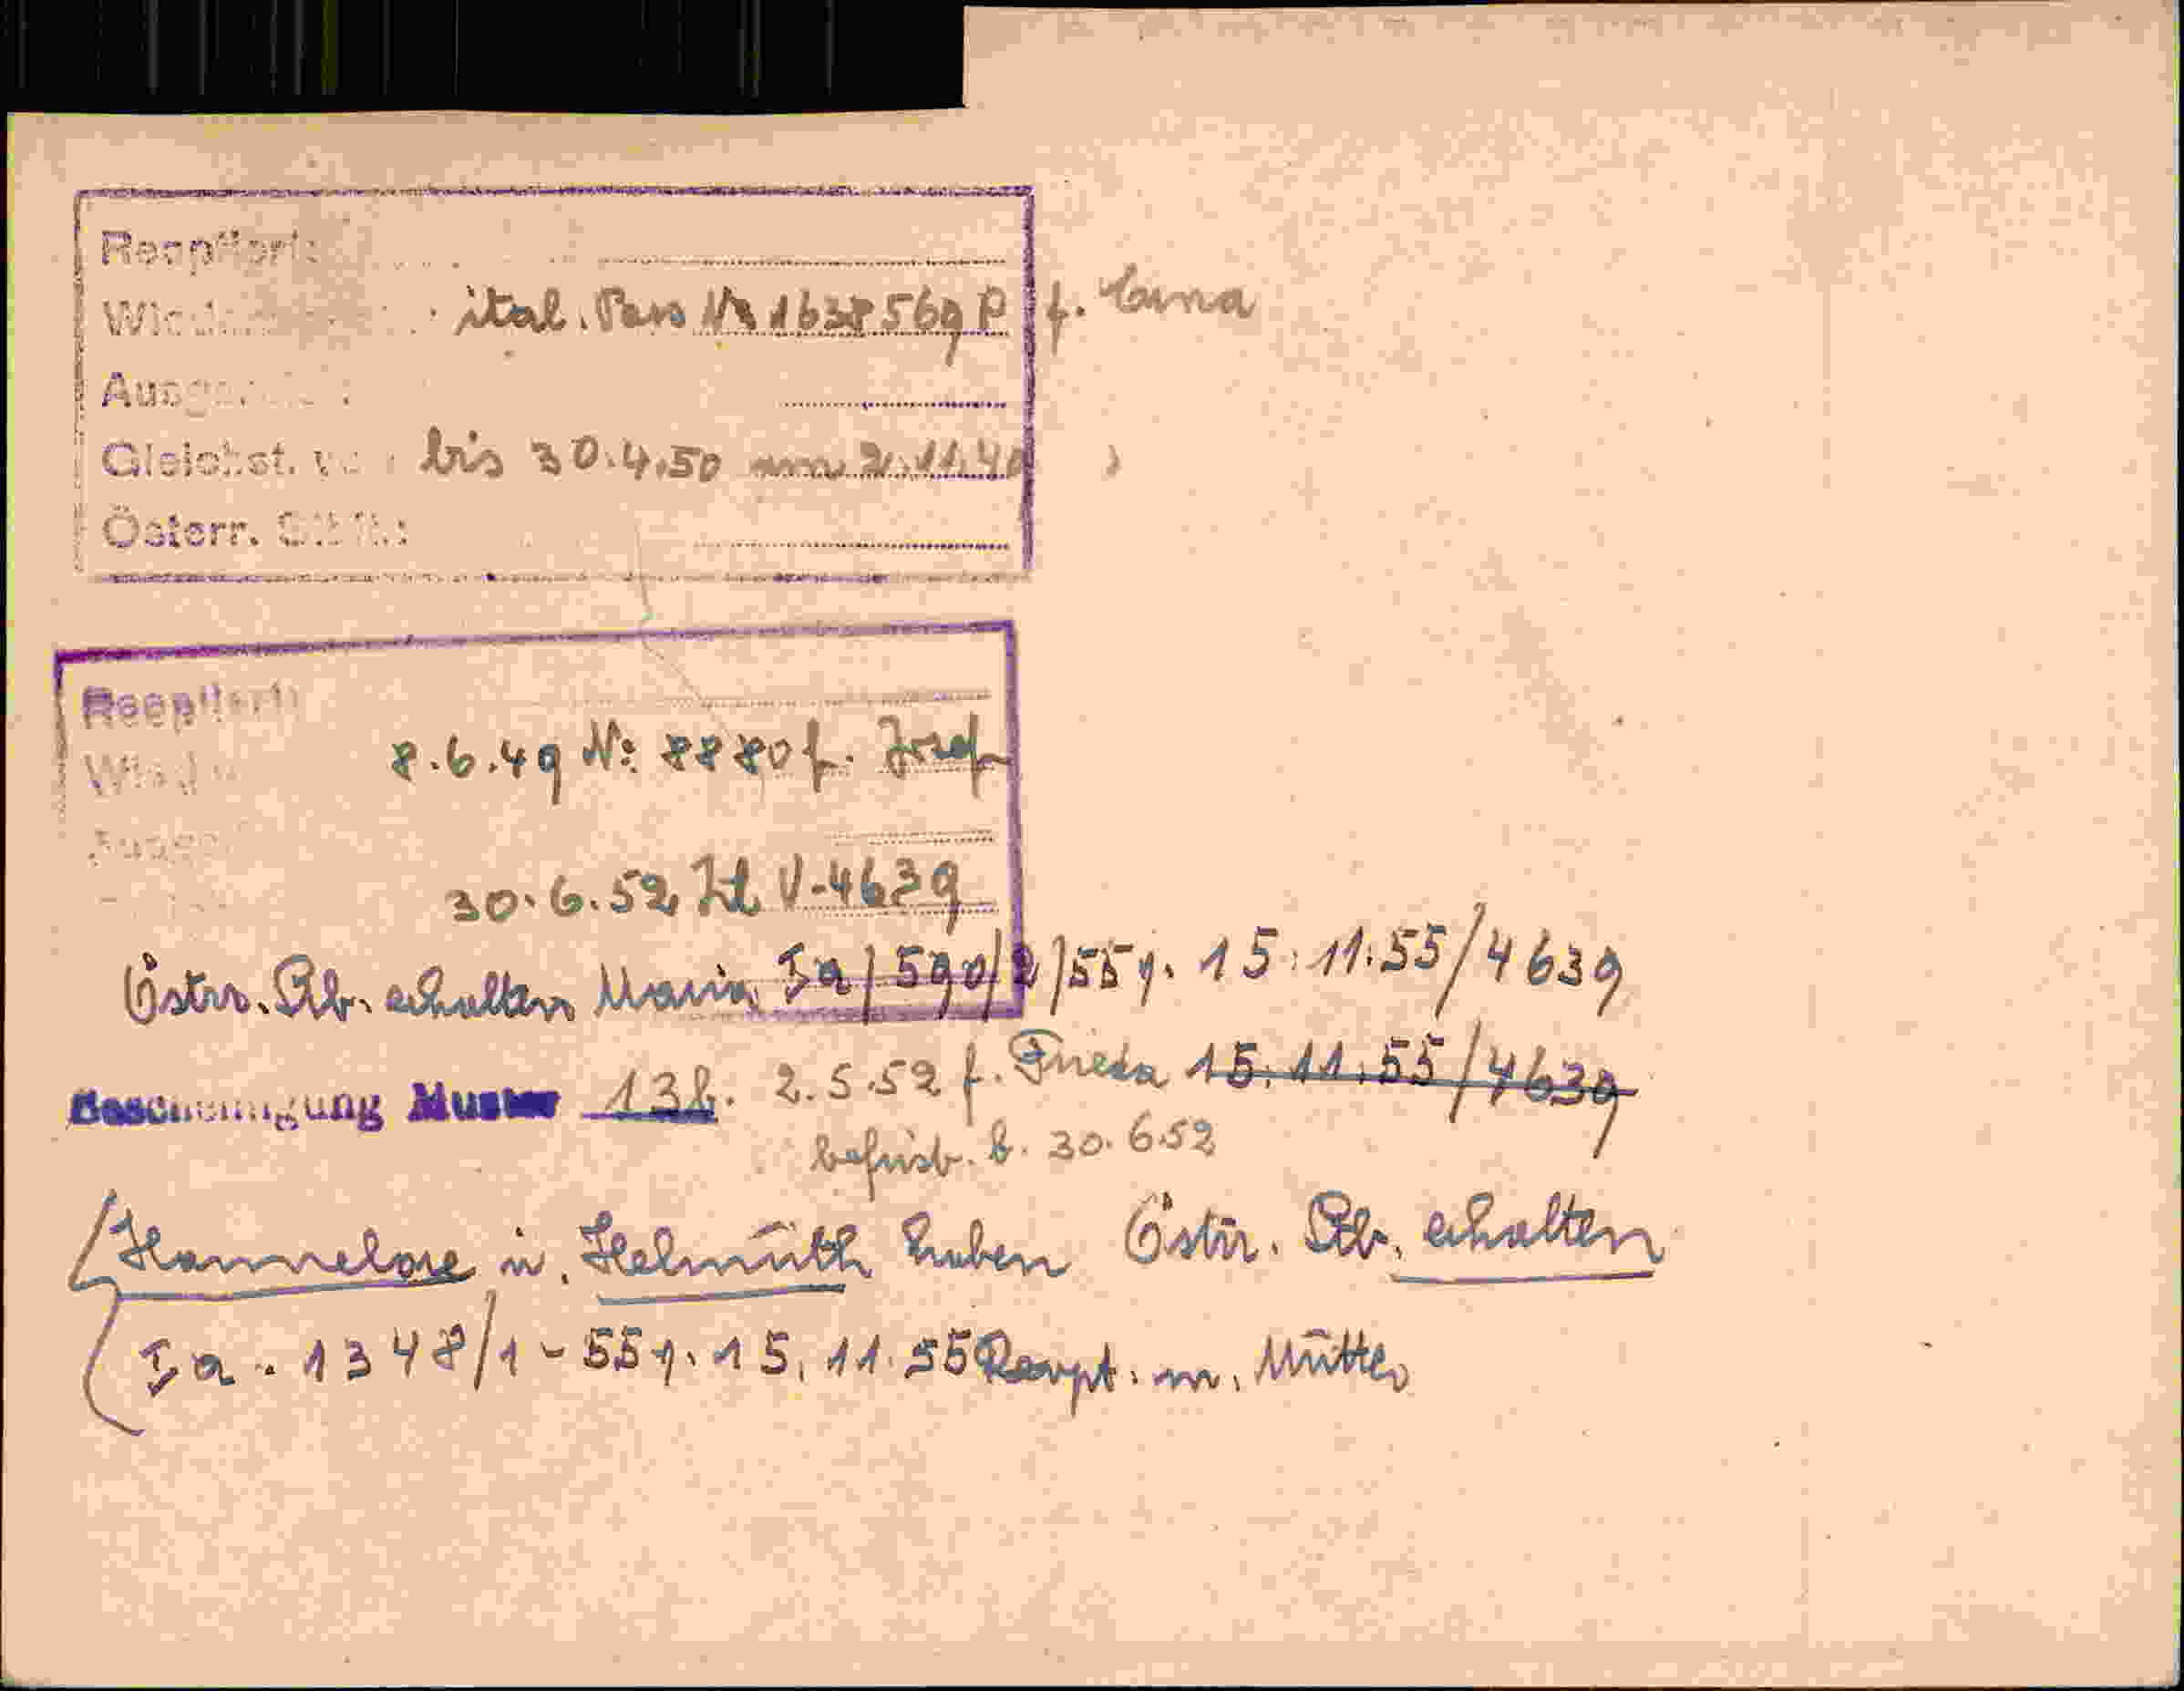 Reoptiert:
ital. Pass Nr 1638569 P f. Anna
Ausge
Gleichst. v bis 30.4.50 am 2.11.49
Österr.
Reoptiert
8.6.49 Nº 8880 f. Josef
30.6.52 Zl V-4639
Östrr. Stb. erhalten Maria Ia/590/2/55 v. 15.11.55/4639
Bescheinigung Muster 13 f. 2.5.52 f. Frieda 15.11.55/4639
befrist. b. 30.6.52
Hannelore u. Helmuth haben Östrr. Stb. erhalten
Ia-1348/1-55 v. 15.11.55 Reopt. m. Mutter